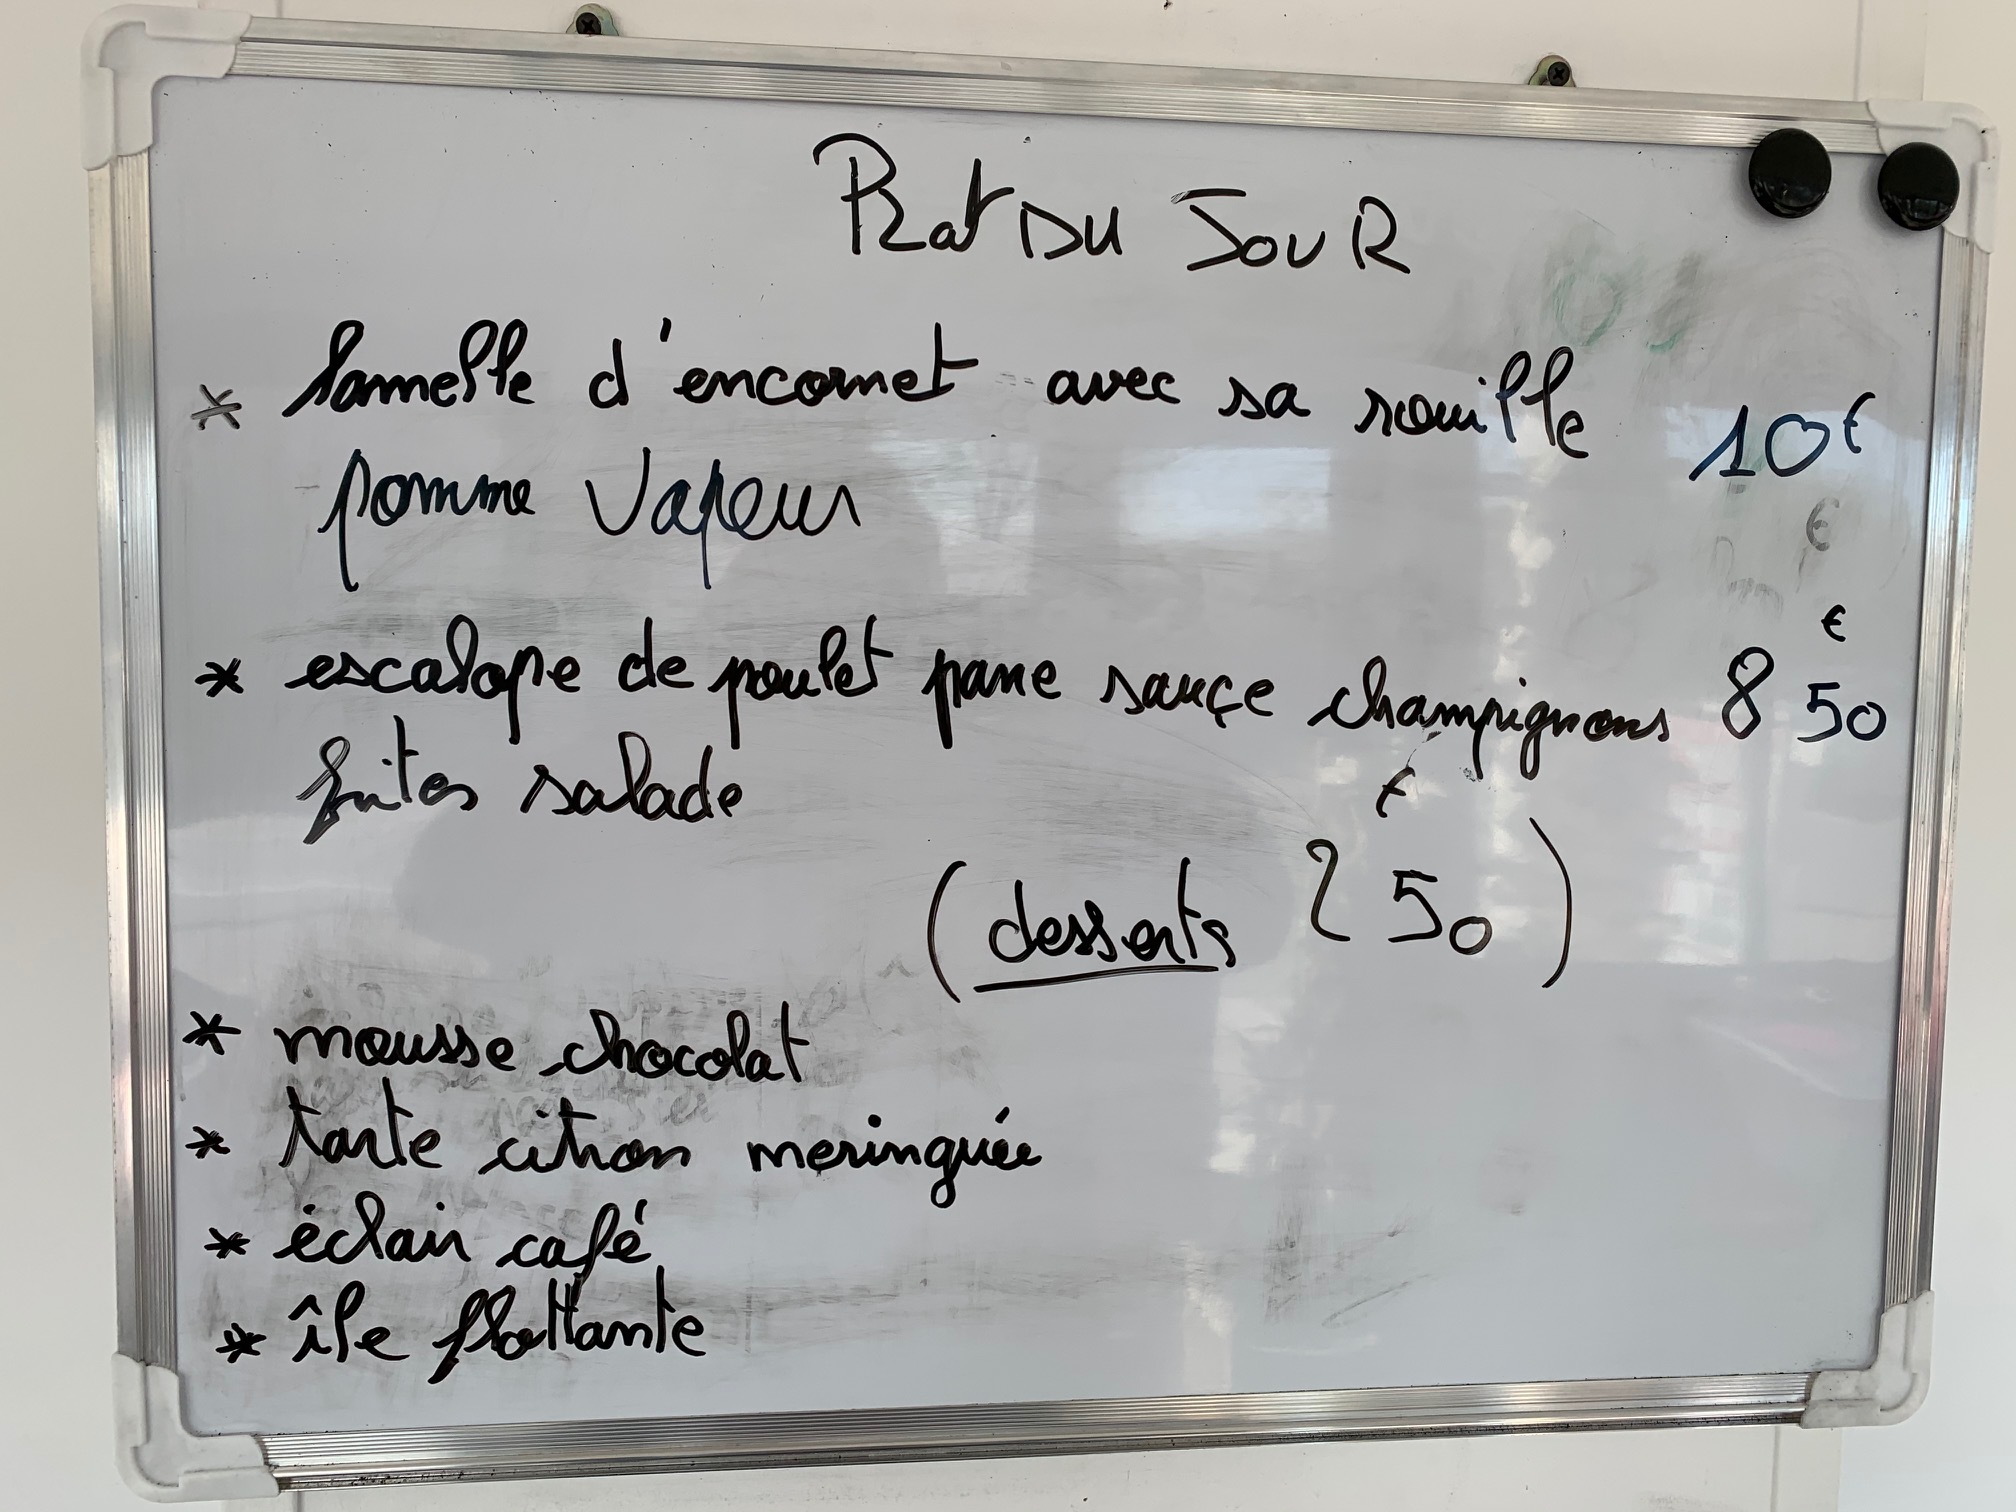 Plat DU JOUR
* lamelle d'encornet avec sa rouille 10€
pomme Vapeur
* escalope de poulet pane sauçe champignons 8€50
frites salade
(desserts 2€50)
* mousse chocolat
* tarte citron meringuée
* éclair café
* île flottante